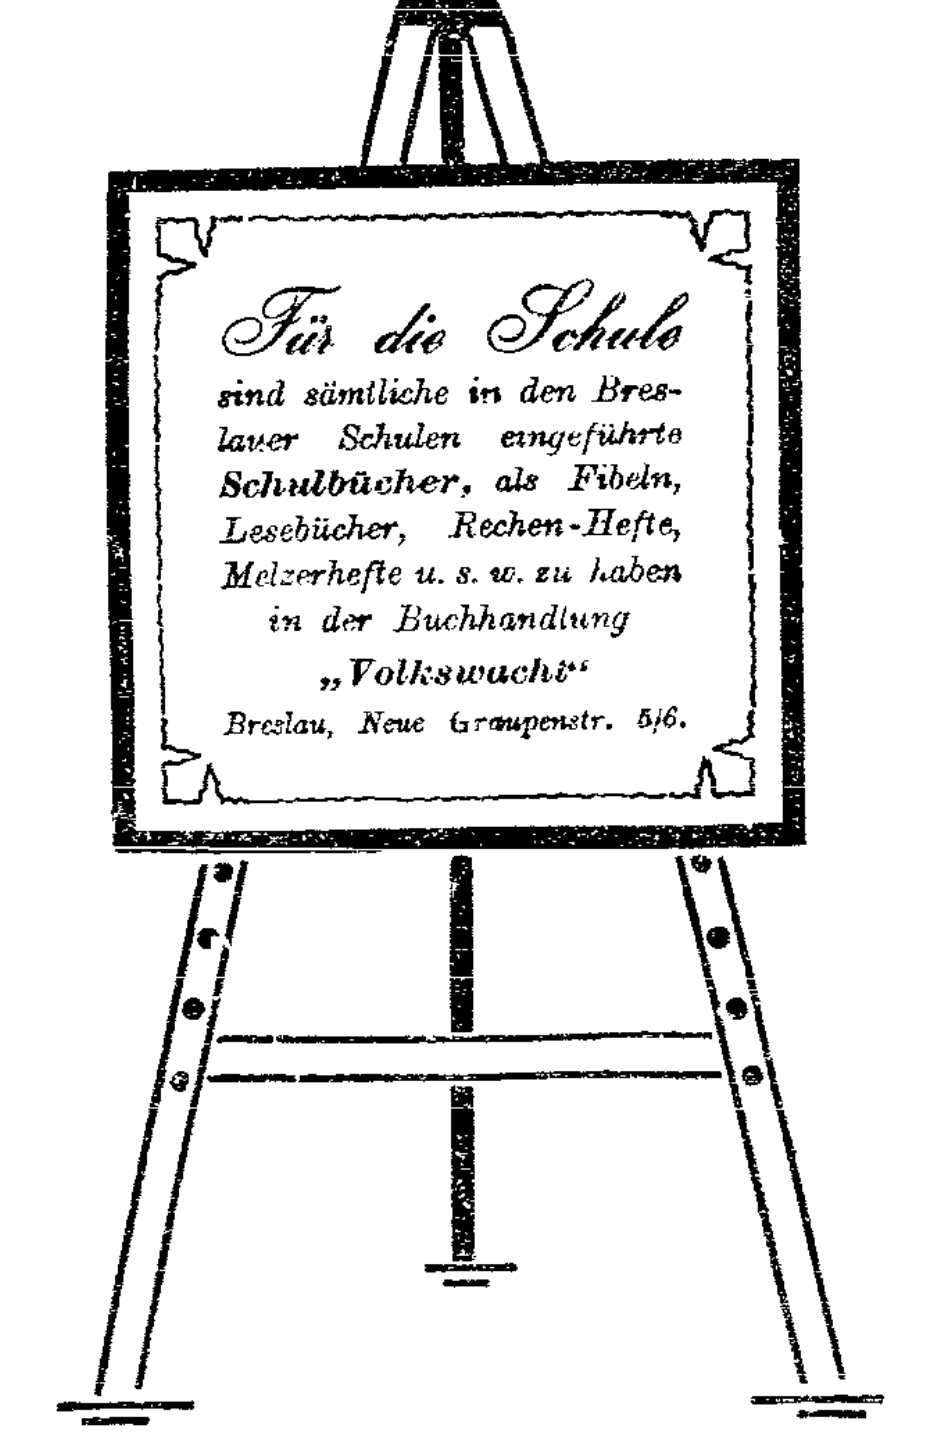 Für die Schule
sind sämtliche in den Bres-
lauer Schulen eingeführte
Schulbücher, als Fibeln,
Lesebücher, Rechen-Hefte,
Melzerhefte u. s. w. zu haben
in der Buchhandlung
„Volkswacht“
Breslau, Neue Graupenstr. 5/6.